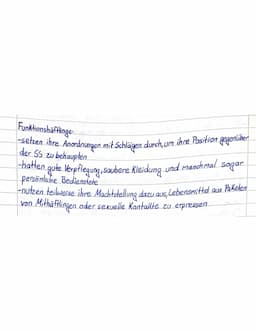 Funktionshäftlinge
-setzen ihre Anordnungen mit Schlägen durch, um ihre Position gegenüber
der SS zu behaupten
-hatten gute Verpflegung, saubere Kleidung und manchmal sogar
persönliche Bedienstete
-nutzen teilweise ihre Machtstellung dazu aus, Lebensmittel aus Paketen
von Mithäftlingen oder sexuelle Kontakte zu erpressen